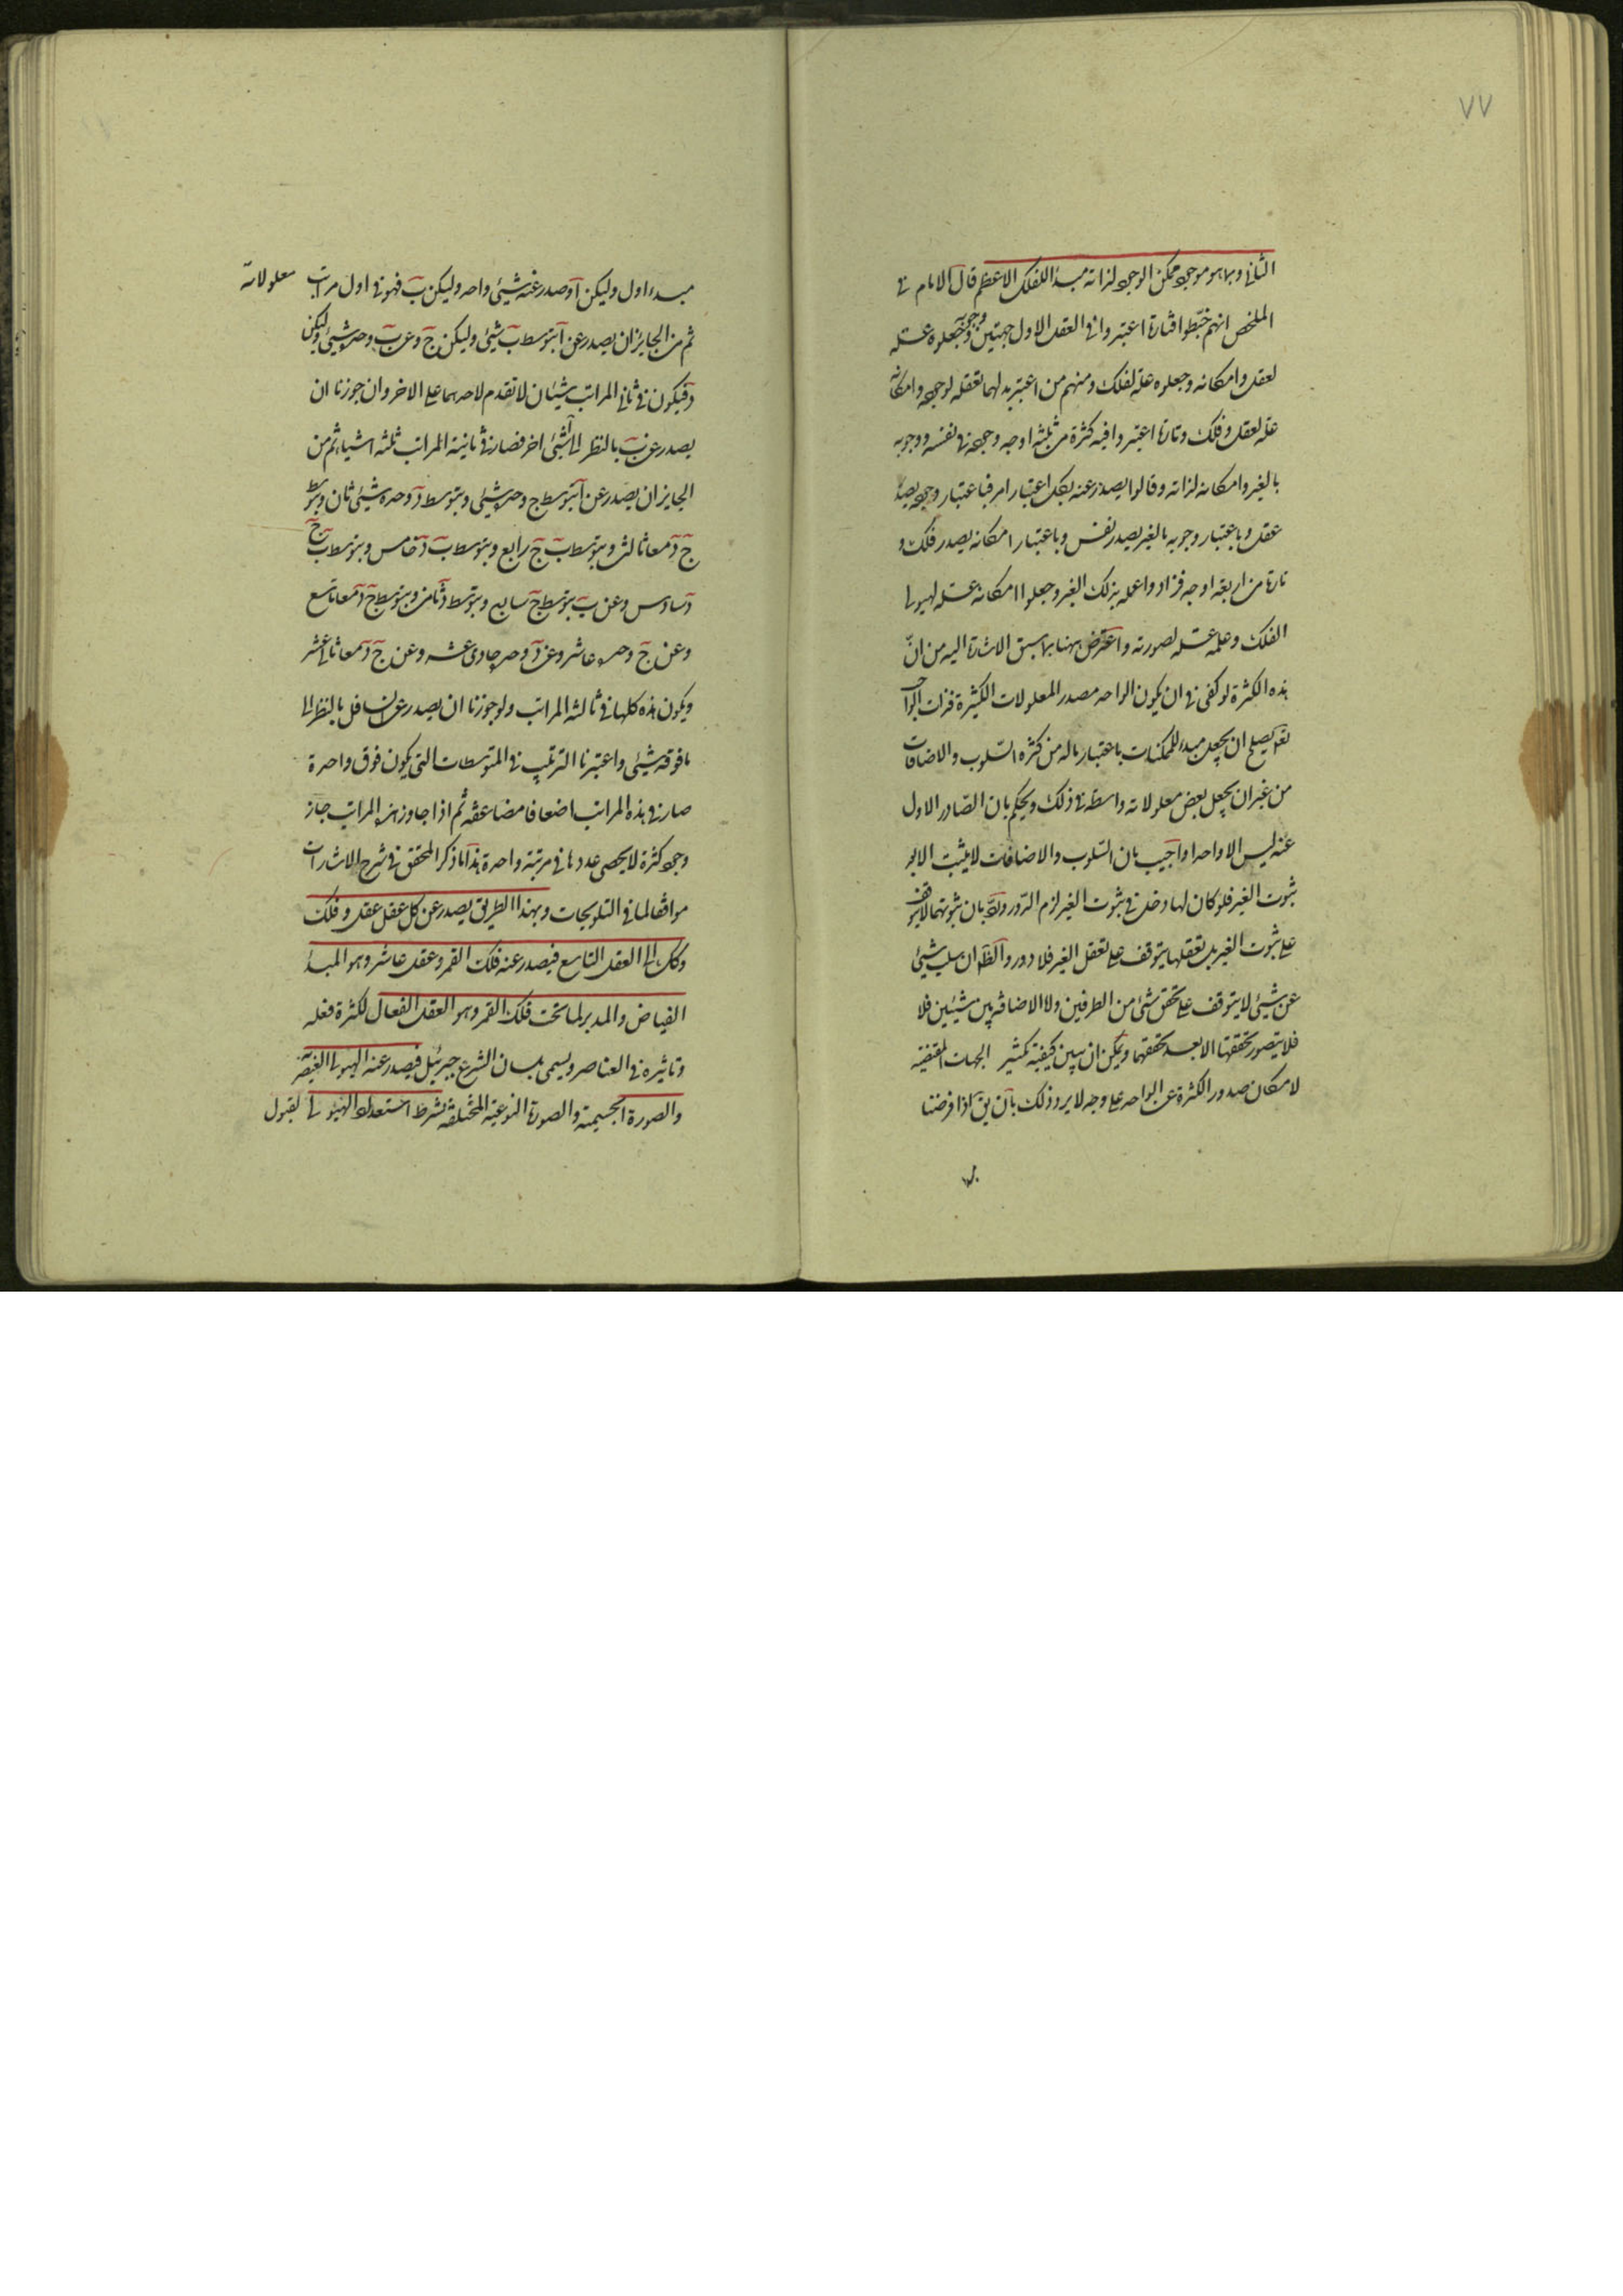 ٧٧
الثانى وبما هو موجود ممكن الوجود لذاته مبدأ للفلك الاعظم قال الامام فى
الملخص انهم خبّطوا فتارة اعتبروا فى العقل الاول جهتين وجوده وجعلوه علة
لعقل وامكانه وجعلوه علة لفلك ومنهم من اعتبر بدلهما تعقله لوجوده وامكانه
علة لعقل وفلك وتارة اعتبروا فيه كثرة من ثلثة اوجه وجوده فى نفسه ووجوبه
بالغير وامكانه لذاته وقالوا يصدر عنه بكل اعتبار امر فباعتبار وجوده يصدر
عقل وباعتبار وجوبه بالغير يصدر نفس وباعتبار امكانه يصدر فلك و
تارة من اربعة اوجه فزادوا علمه بذلك الغير وجعلوا امكانه علة لهيولى
الفلك وعلمه علة لصورته واعترض ههنا بما سبق الاشارة اليه من انّ
هذه الكثرة لو كفى فى ان يكون الواحد مصدر المعلولات الكثيرة فذات الواجب
تعالى يصلح ان يجعل مبدء للممكنات باعتبار ماله من كثرة السّلوب والاضافات
من غير ان يجعل بعض معلولاته واسطة فى ذلك ويحكم بان الصّادر الاول
عنه ليس الا واحدا واجيب بان السّلوب والاضافات لا يثبت الا بعد
ثبوت الغير فلو كان لها دخل فى ثبوت الغير لزم الدّور وردّ بان ثبوتهما لا يتوقف
على ثبوت الغير بل تعقلها يتوقف على تعقل الغير فلا دور والظّ ان سلب شيئ
عن شيئ لا يتوقف على تحقق شئ من الطرفين ولا الاضافة بين شيئين فلا
فلا يتصور تحققها الا بعد تحققهما ويمكن ان يبين كيفية تكثير الجهات المقتضية
لامكان صدور الكثرة عن الواحد على وجه لا يرد ذلك بان يق اذا فرضنا
مبدءا اول وليكن آ وصدر عنه شيئ واحد وليكن بَ فهو فى اول مراتب معلولاته
ثم من الجايز ان يصدر عن آ بتوسط بَ شيئ وليكن جَ وعن بَ وحده شيئ وليكن
دَ فيكون فى ثانى المراتب شيئان لا تقدم لاحدهما على الاخر وان جوزنا ان
يصدر عن بَ بالنظر الى آ شيئ اخر فصار فى ثانية المراتب ثلثة اشياء ثم من
الجايز ان يصدر عن آ بتوسط ج وحده شيئ وبتوسط دَ وحده شيئ ثان وبتوسط
جَ دَ معا ثالث وبتوسط بَ جَ رابع وبتوسط بَ دَ خامس وبتوسط بَ جَ
دَ سادس وعن بَ بتوسط جَ سابع وبتوسط دَ ثامن وبتوسط جَ دَ معا تاسع
وعن جَ وحده عاشر وعن دَ وحده حادى عشر وعن جَ دَ معا ثانى عشر
ويكون هذه كلها فى ثالثة المراتب ولو جوزنا ان يصدر عن السافل بالنظر الى
ما فوقه شيئ واعتبرنا الترتيب فى المتوسطات التى يكون فوق واحدة
صار فى هذه المراتب اضعافا مضاعفة ثم اذا جاوز هذه المراتب جاز
وجود كثرة لا يحصى عددها فى مرتبة واحدة هذا ما ذكر المحقق فى شرح الاشارات
موافقا لما فى التلويحات وبهذا الطريق يصدر عن كل عقل عقل وفلك
وكل الى العقل التاسع فيصدر عنه فلك القمر وعقل عاشر وهو المبدأ
الفياض والمدبر لما تحت فلك القمر وهو العقل الفعال لكثرة فعله
وتاثيره فى العناصر ويسمى بلسان الشرع جبرئيل فيصدر عنه الهيولى العنصرية
والصورة الجسمية والصورة النوعية المختلفة بشرط استعداد الهيولى لقبول